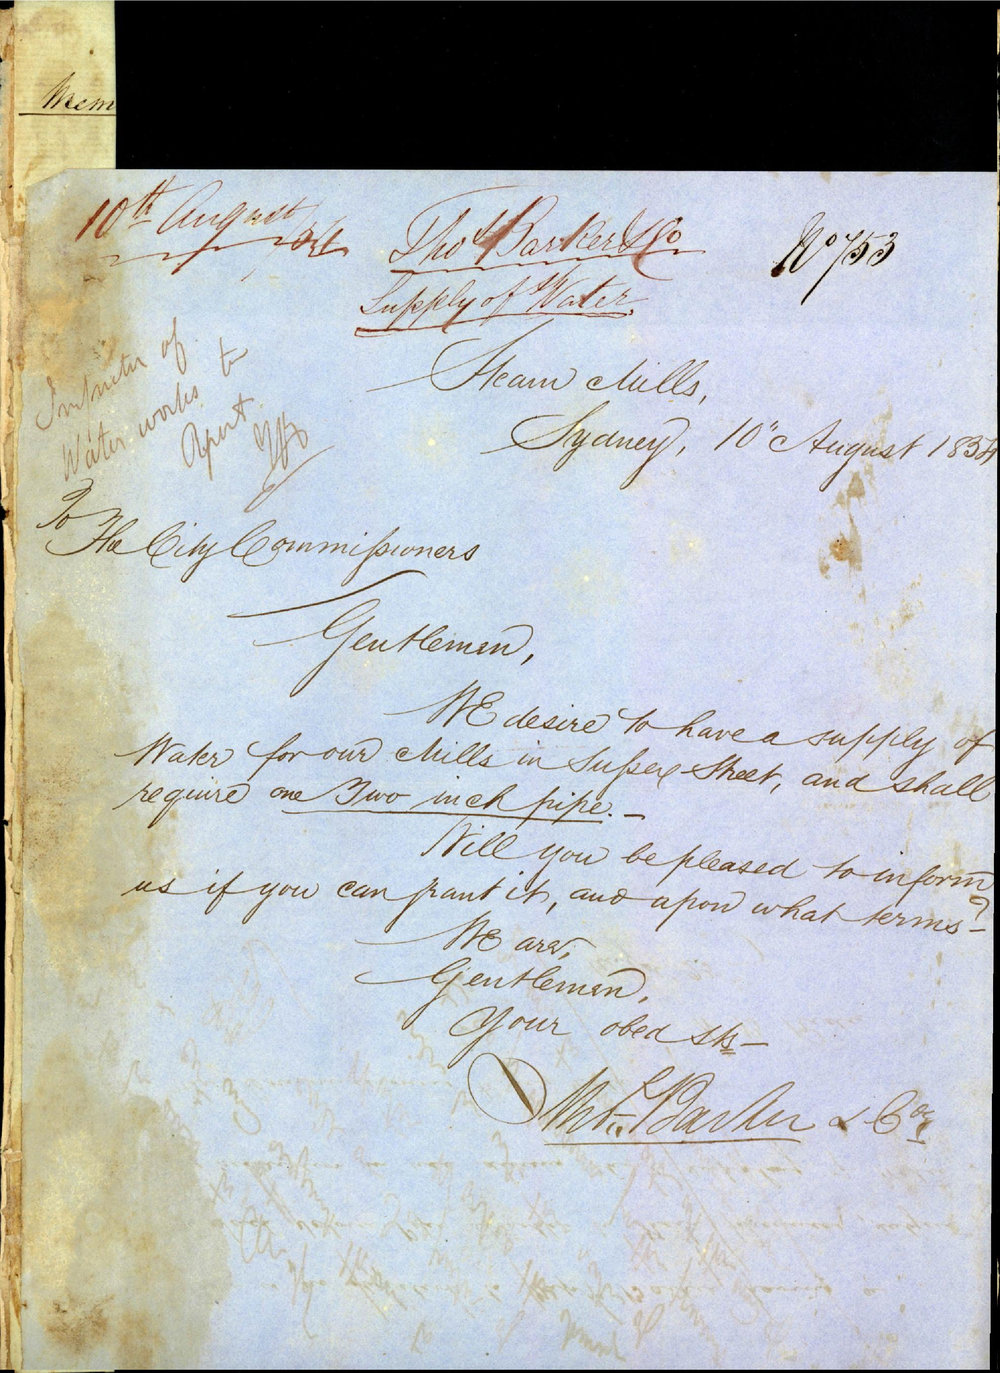 Mem
10th August /54
Thos Barker & Co
No 753
Supply of Water
Inspector of
Water works to
Report
Steam Mills,
Sydney, 10" August 1854
To
The City Commissioners
Gentlemen,
We desire to have a supply of
Water for our Mills in Sussex Street, and shall
require one Two inch pipe. —
Will you be pleased to inform
us if you can grant it, and upon what terms?—
We are,
Gentlemen,
Your obed sts—
Thos Barker & Co